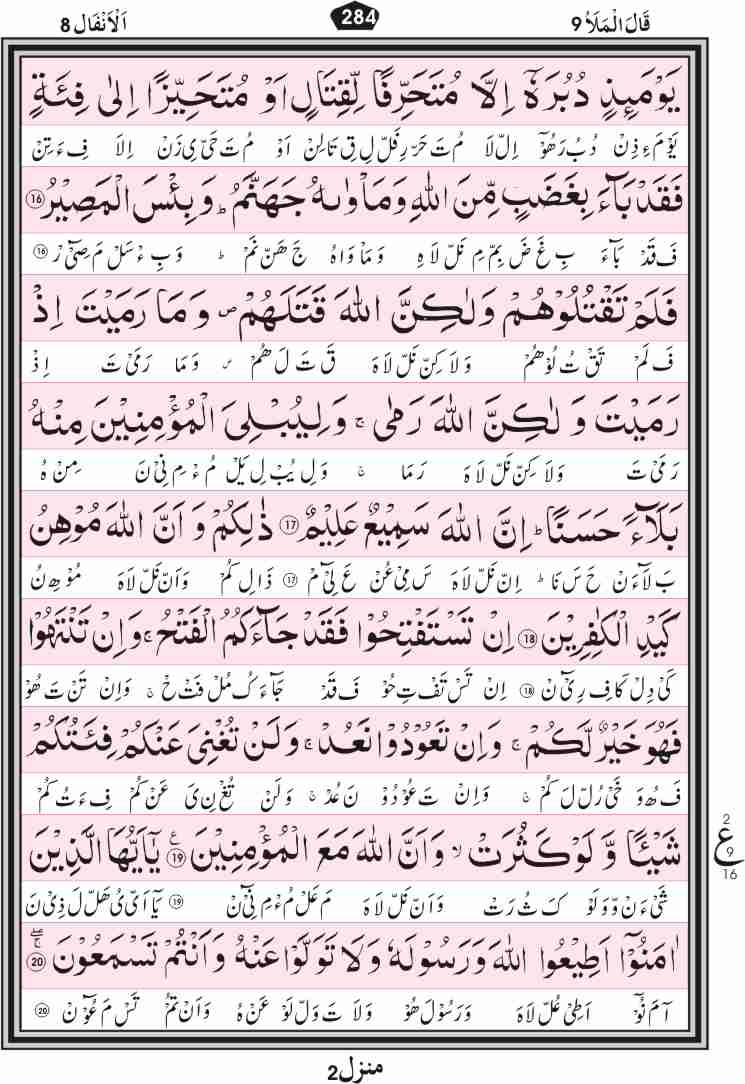 اَلْاَنْفَال 8 284 قَالَ الْمَلَاُ 9
يَوْمَئِذٍ دُبُرَهٗۤ اِلَّا مُتَحَرِّفًا لِّقِتَالٍ اَوْ مُتَحَيِّزًا اِلٰى فِئَةٍ
يَوْمَ ءِذِنْ دُبُرَهُوْٓ اِلْ لَا مُ تَ حَرْرِ فَلْ لِ قِ تَالِنْ اَوْ مُ تَ حَىْ یِ زَنْ اِلَا فِ ءَ تِنْ
فَقَدْ بَآءَ بِغَضَبٍ مِّنَ اللّٰهِ وَمَاْوٰىهُ جَهَنَّمُ ؕ وَبِئْسَ الْمَصِيْرُ ۝16
فَ قَدْ بَآءَ بِ غَ ضَ بِمْ مِ نَلْ لَاهِ وَ مَاْ وَاهُ جَ هَنْ نَمُ ؕ وَ بِ ءْ سَلْ مَ صِىْٓ رْ 16
فَلَمْ تَقْتُلُوْهُمْ وَلٰكِنَّ اللّٰهَ قَتَلَهُمْ ۪ وَمَا رَمَيْتَ اِذْ
فَ لَمْ تَقْ تُ لُوْ هُمْ وَ لَا كِنْ نَلْ لَاهَ قَ تَ لَ هُمْ ۪ وَ مَا رَمَىْ تَ اِذْ
رَمَيْتَ وَ لٰكِنَّ اللّٰهَ رَمٰى ۚ وَلِيُبْلِىَ الْمُؤْمِنِيْنَ مِنْهُ
رَمَىْ تَ وَ لَا كِنْ نَلْ لَاهَ رَمَا ۚ وَ لِ يُبْ لِ يَلْ مُ ءْ مِ نِىْ نَ مِنْ هُ
بَلَآءً حَسَنًا ؕ اِنَّ اللّٰهَ سَمِيْعٌ عَلِيْمٌ ۝17 ذٰلِكُمْ وَ اَنَّ اللّٰهَ مُوْهِنُ
بَ لَآءَنْ حَ سَ نَا ؕ اِنْ نَلْ لَاهَ سَ مِىْ عُنْ عَ لِىْٓ مْ 17 ذَالِ كُمْ وَ اَنْ نَلْ لَاهَ مُوْ هِ نُ
كَيْدِ الْكٰفِرِيْنَ ۝18 اِنْ تَسْتَفْتِحُوْا فَقَدْ جَآءَكُمُ الْفَتْحُ ۚ وَاِنْ تَنْتَهُوْا
كَىْ دِلْ كَافِ رِىْٓ نْ 18 اِنْ تَسْ تَفْ تِ حُوْ فَ قَدْ جَآءَ كُ مُلْ فَتْ حْ ۚ وَاِنْ تَنْ تَ هُوْ
فَهُوَ خَيْرٌ لَّكُمْ ۚ وَاِنْ تَعُوْدُوْا نَعُدْ ۚ وَلَنْ تُغْنِىَ عَنْكُمْ فِئَتُكُمْ
فَ هُوَ خَىْ رُلْ لَ كُمْ ۚ وَاِنْ تَ عُوْ دُوْ نَ عُدْ ۚ وَ لَنْ تُغْ نِ یَ عَنْ كُمْ فِ ءَ تُ كُمْ
شَيْئًا وَّ لَوْ كَثُرَتْ ۙ وَاَنَّ اللّٰهَ مَعَ الْمُؤْمِنِيْنَ ۝19 يٰۤاَيُّهَا الَّذِيْنَ
شَىْ ءَنْ وَوَلَوْ كَ ثُ رَتْ وَ اَنْ نَلْ لَاهَ مَ عَلْ مُ ءْ مِ نِىْٓ نْ 19 يَآ اَىْ یُ هَلْ لَ ذِىْ نَ
اٰمَنُوْۤا اَطِيْعُوا اللّٰهَ وَرَسُوْلَهٗ وَلَا تَوَلَّوْا عَنْهُ وَاَنْتُمْ تَسْمَعُوْنَ ۝20
آ مَ نُوْٓ اَ طِىْ عُلْ لَاهَ وَ رَسُوْ لَ هُوْ وَ لَا تَ وَلْ لَوْ عَنْ هُ وَ اَنْ تُمْ تَسْ مَ عُوْٓ نْ 20
ع 2 9 16
منزل2